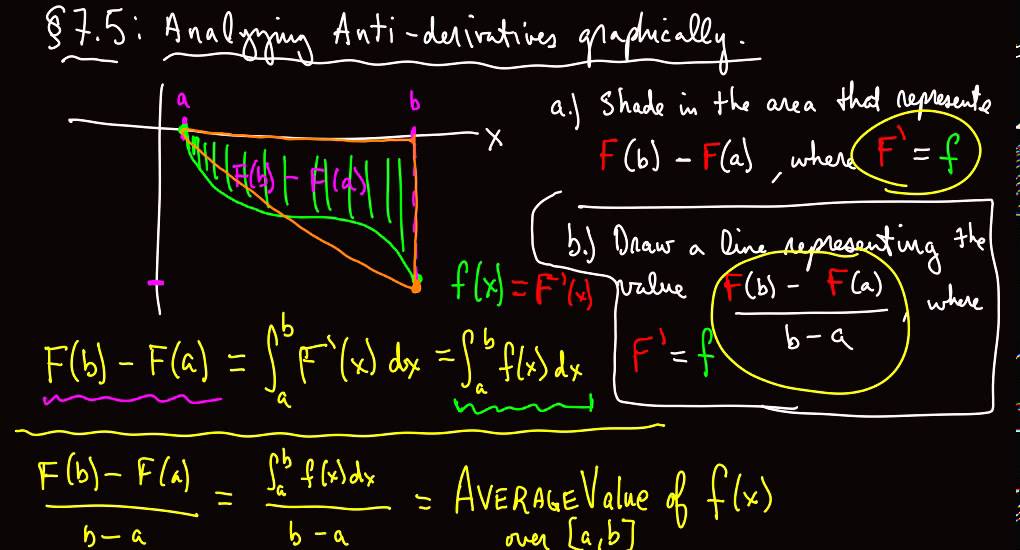 §7.5: Analyzing Anti-derivatives graphically.
a b
x
F(b) - F(a)
f(x) = F'(x)
a.) Shade in the area that represents
F(b) - F(a), where F' = f
b.) Draw a line representing the
value F(b) - F(a) / b-a, where
F' = f
F(b) - F(a) = ∫_a^b F'(x) dx = ∫_a^b f(x) dx
F(b) - F(a) / b-a = ∫_a^b f(x) dx / b-a = AVERAGE Value of f(x)
over [a,b]